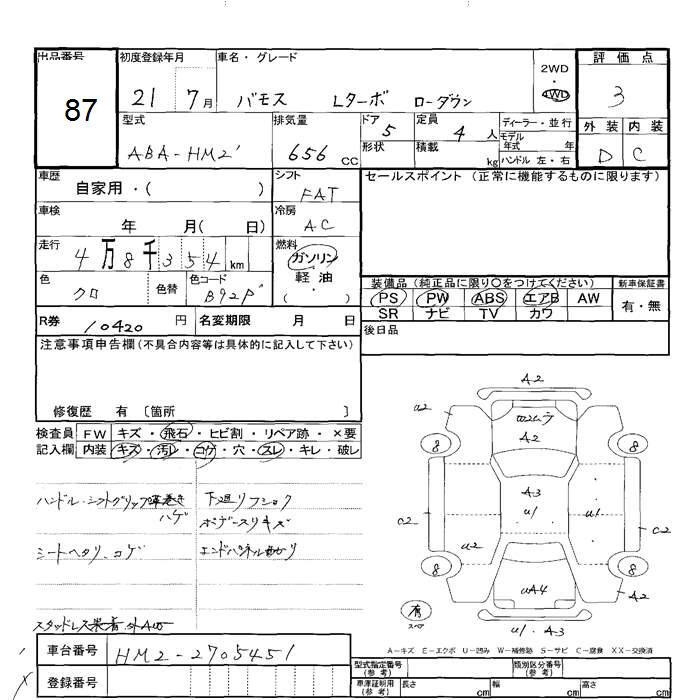 出品番号
87
初度登録年月
21 7月
車名・グレード
バモス Lターボ ローダウン
2WD
・
4WD
評価点
3
型式
ABA-HM2
排気量
656 CC
ドア
5
定員
4 人
形状
積載
kg
ディーラー・並行
モデル
年式 年
ハンドル 左・右
外装 内装
D C
車歴
自家用・( )
シフト
FAT
セールスポイント (正常に機能するものに限ります)
車検
年 月( 日)
冷房
AC
走行
4万8千354km
燃料
ガソリン
軽油
( )
色
クロ
色替
色コード
B92P
装備品 (純正品に限り○をつけてください)
PS PW ABS エアB AW
SR ナビ TV カワ
新車保証書
有・無
R券
10420 円
名変期限 月 日
後日品
注意事項申告欄(不具合内容等は具体的に記入して下さい)
修復歴 有〔箇所 〕
検査員 FW キズ・飛石・ヒビ割・リペア跡・×要
記入欄 内装 キズ・汚レ・コゲ・穴・スレ・キレ・破レ
ハンドル・シフトグリップ革巻き
ハゲ
シートヘタリ、コゲ
下廻リフショク
ボデースリキズ
エンドパネル曲がり
A2
U2
A2
8
8
A3
U1
U1
C2
C2
U2
8
8
UA4
A2
有
スペア
U1. A3
A-キズ E-エクボ U-凹み W-補修跡 S-サビ C-腐食 XX-交換済
車台番号 HM2-2705451
登録番号
型式指定番号
(参考)
類別区分番号
(参考)
車庫証明用
(参考)
長さ cm 幅 cm 高さ cm